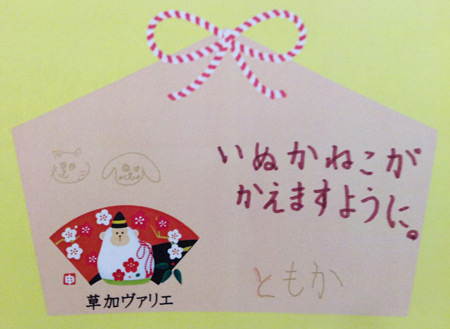 いぬかねこが
かえますように。
ともか
申
草加ヴァリエ